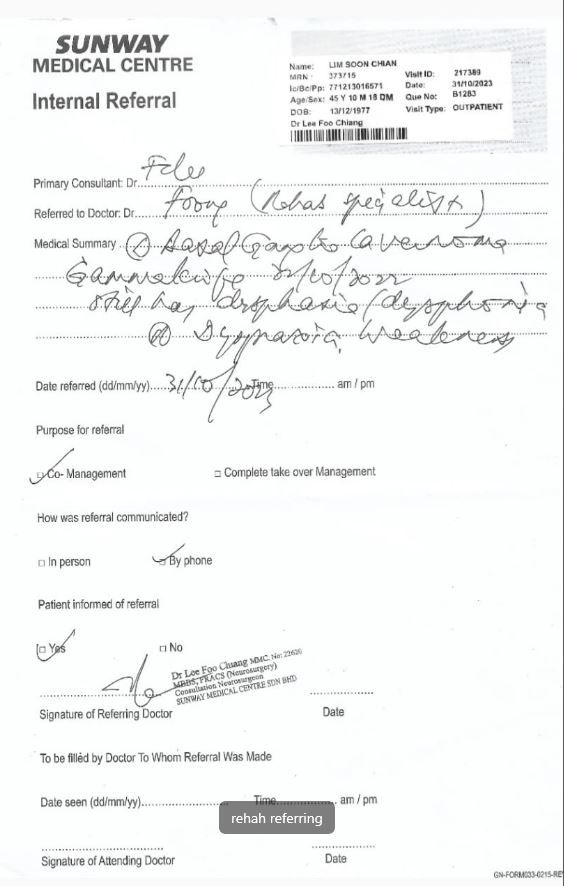 SUNWAY
MEDICAL CENTRE
Internal Referral
Name: LIM SOON CHIAN
MRN : 373715 Visit ID: 217389
Ic/Bc/Pp: 771213016571 Date: 31/10/2023
Age/Sex: 45 Y 10 M 18 D M Que No: B1283
DOB: 13/12/1977 Visit Type: OUTPATIENT
Dr Lee Foo Chiang
Primary Consultant: Dr.
Referred to Doctor: Dr. Foong (Rehab specialist)
Medical Summary Cavernoma
Gammaknife /10/2022
still has dysphasia/dysphonia
weakness
Date referred (dd/mm/yy) 31/10/2023 Time am / pm
Purpose for referral
Co- Management Complete take over Management
How was referral communicated?
In person By phone
Patient informed of referral
Yes No
Dr Lee Foo Chiang MMC. No: 22620
MBBS, FRACS (Neurosurgery)
Consultation Neurosurgeon
SUNWAY MEDICAL CENTRE SDN BHD
Signature of Referring Doctor Date
To be filled by Doctor To Whom Referral Was Made
Date seen (dd/mm/yy) Time am / pm
rehah referring
Signature of Attending Doctor Date
GN-FORM033-0215-RE